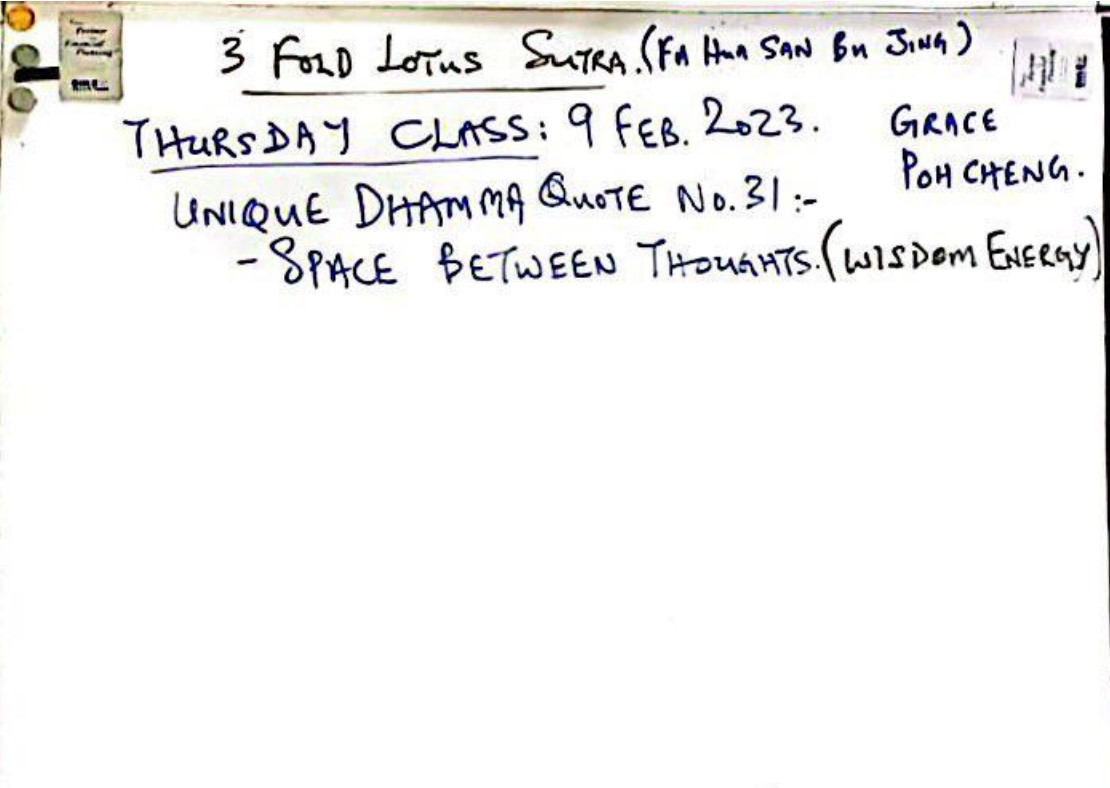 3 FOLD LOTUS SUTRA. (FA HUA SAN BU JING)
THURSDAY CLASS: 9 FEB. 2023.
GRACE
POH CHENG.
UNIQUE DHAMMA QUOTE NO. 31 :-
- SPACE BETWEEN THOUGHTS. (WISDOM ENERGY)